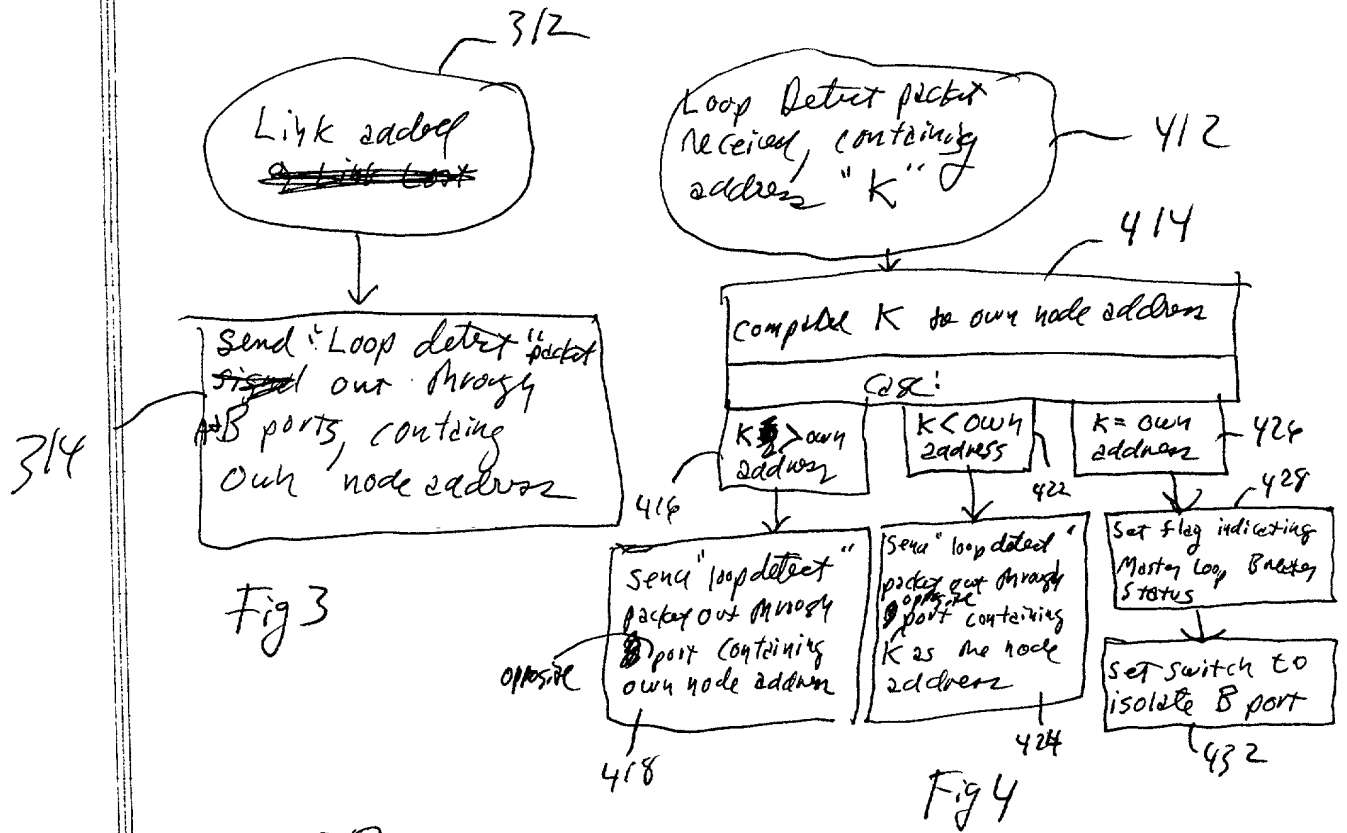 312
Link added
314
send "Loop detect" packet
out through
A+B ports, containg
Own node address
Fig 3
Loop Detect packet
received, containing
address "K"
412
414
K to own node address
Case:
K > own
address
416
K < own
address
422
K = own
address
426
send "loop detect"
packet out through
opposite
port containing
own node address
418
send "loop detect"
packet out through
opposite
port containing
K as the node
address
424
428
Set flag indicating
Master Loop Breaker
Status
Set switch to
isolate B port
432
Fig 4